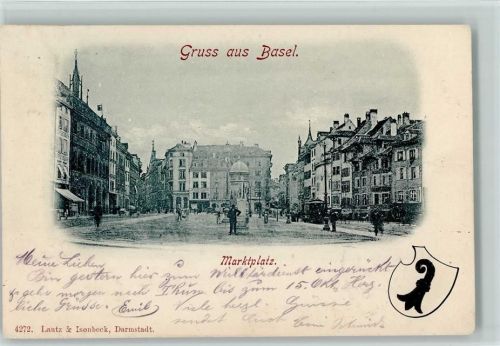 Gruss aus Basel.
Marktplatz.
Meine Lieben
Bin gestern hier zum eingerückt
gehe morgen nach Thun bis zum 15. Okt.
liebe Grüsse. Emil Viele herzl. Grüsse
sendet
4272. Lautz & Isenbeck, Darmstadt.